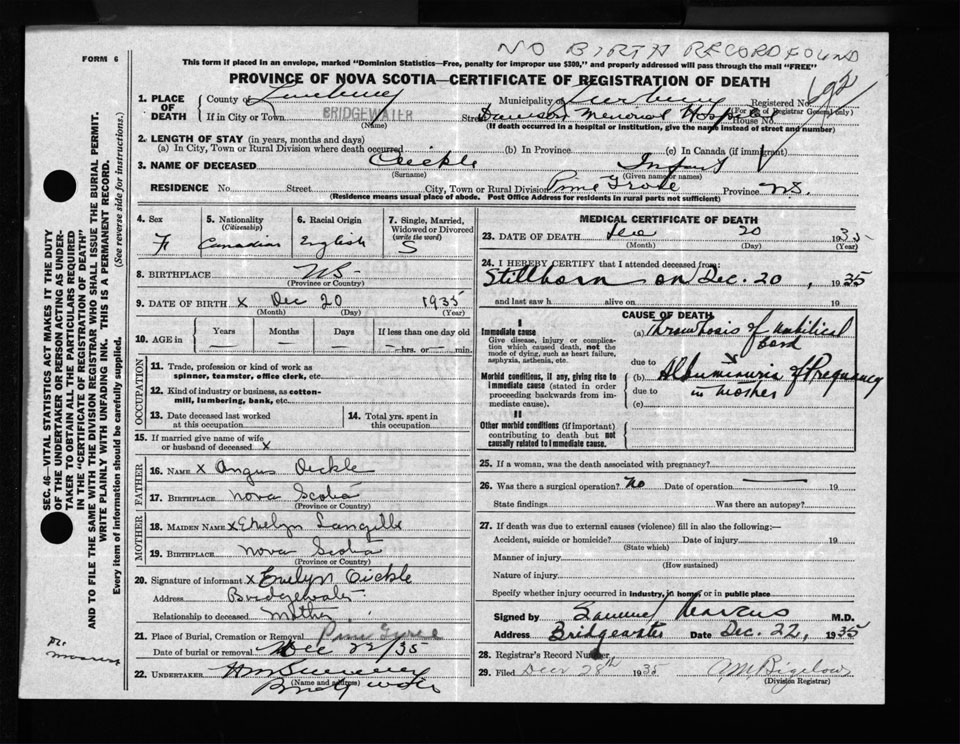 NO BIRTH RECORD FOUND
FORM 6
This form if placed in an envelope, marked "Dominion Statistics—Free, penalty for improper use $300," and properly addressed will pass through the mail "FREE"
PROVINCE OF NOVA SCOTIA—CERTIFICATE OF REGISTRATION OF DEATH
1. PLACE OF DEATH
County of Lunenburg Municipality of Lunenburg Registered No. 692
(For use of Registrar General only)
If in City or Town BRIDGEWATER Street Dawson Memorial Hospital House No.
(Name) (If death occurred in a hospital or institution, give the name instead of street and number)
2. LENGTH OF STAY (in years, months and days)
(a) In City, Town or Rural Division where death occurred (b) In Province (c) In Canada (if immigrant)
3. NAME OF DECEASED Oickle Infant
(Surname) (Given name or names)
RESIDENCE No. Street City, Town or Rural Division Pine Grove Province N.S.
(Residence means usual place of abode. Post Office Address for residents in rural parts not sufficient)
SEC. 46—VITAL STATISTICS ACT MAKES IT THE DUTY
OF THE UNDERTAKER OR PERSON ACTING AS UNDER-
TAKER TO OBTAIN ALL THE PARTICULARS REQUIRED
IN THE "CERTIFICATE OF REGISTRATION OF DEATH"
AND TO FILE THE SAME WITH THE DIVISION REGISTRAR WHO SHALL ISSUE THE BURIAL PERMIT.
WRITE PLAINLY WITH UNFADING INK. THIS IS A PERMANENT RECORD.
Every item of information should be carefully supplied. (See reverse side for instructions.)
4. Sex
F
5. Nationality
(Citizenship)
Canadian
6. Racial Origin
English
7. Single, Married, Widowed or Divorced
(write the word)
S
8. BIRTHPLACE NS
(Province or Country)
9. DATE OF BIRTH x Dec 20 1935
(Month) (Day) (Year)
10. AGE in
Years Months Days If less than one day old
— — — —hrs. or —min.
OCCUPATION
11. Trade, profession or kind of work as
spinner, teamster, office clerk, etc.
12. Kind of industry or business, as cotton-
mill, lumbering, bank, etc.
13. Date deceased last worked
at this occupation
14. Total yrs. spent in
this occupation
15. If married give name of wife
or husband of deceased x
FATHER
16. NAME x Angus Oickle
17. BIRTHPLACE Nova Scotia
(Province or Country)
MOTHER
18. MAIDEN NAME x Evelyn Langille
19. BIRTHPLACE Nova Scotia
(Province or Country)
20. Signature of informant x Evelyn Oickle
Address Bridgewater
Relationship to deceased Mother
21. Place of Burial, Cremation or Removal Pine Grove
Date of burial or removal Dec 22/35
22. UNDERTAKER
(Name and address)
Bridgewater
MEDICAL CERTIFICATE OF DEATH
23. DATE OF DEATH Dec 20 1935
(Month) (Day) (Year)
24. I HEREBY CERTIFY that I attended deceased from:
Stillborn on Dec. 20, 1935
and last saw h alive on 19
CAUSE OF DEATH
I
Immediate cause
Give disease, injury or complica-
tion which caused death, not the
mode of dying, such as heart failure,
asphyxia, asthenia, etc.
(a) Thrombosis of umbilical
cord
due to
Morbid conditions, if any, giving rise to
immediate cause (stated in order
proceeding backwards from im-
mediate cause).
(b) Albuminuria of Pregnancy
due to in mother
(c)
II
Other morbid conditions (if important)
contributing to death but not
causally related to immediate cause.
25. If a woman, was the death associated with pregnancy?
26. Was there a surgical operation? No Date of operation — 19
State findings Was there an autopsy?
27. If death was due to external causes (violence) fill in also the following:—
Accident, suicide or homicide? Date of injury 19
(State which)
Manner of injury
(How sustained)
Nature of injury
Specify whether injury occurred in industry, in home, or in public place
Signed by Samuel Marcus M.D.
Address Bridgewater Date Dec. 22, 1935
28. Registrar's Record Number
29. Filed Decr 28th 1935 Bigelow
(Division Registrar)